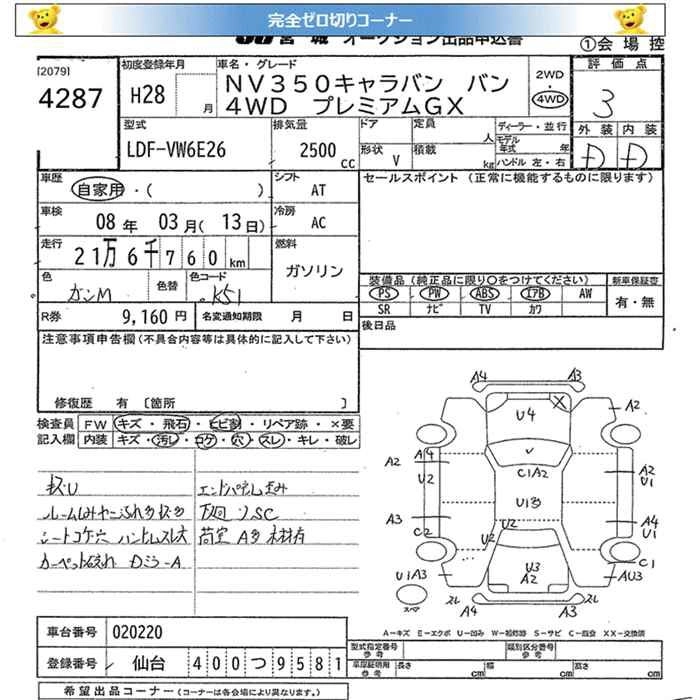 完全ゼロ切りコーナー
JU 宮城 オークション出品申込書
①会場控
[2079]
4287
初度登録年月
H28 月
車名・グレード
NV350キャラバン バン
4WD プレミアムGX
2WD
4WD
評価点
3
型式
LDF-VW6E26
排気量
2500 cc
ドア
形状 V
定員 人
積載 kg
ディーラー・並行
モデル年式 年
ハンドル 左・右
外装 内装
D D
車歴
自家用・( )
シフト
AT
セールスポイント (正常に機能するものに限ります)
車検
08年 03月(13日)
冷房
AC
走行
21万6千760km
燃料
ガソリン
色
ガンM
色替
色コード
K51
装備品 (純正品に限り○をつけてください)
新車保証書
PS PW ABS エアB AW
SR ナビ TV カワ
有・無
R券 9,160円
名変通知期限 月 日
後日品
注意事項申告欄(不具合内容等は具体的に記入して下さい)
修復歴 有 [箇所 ]
検査員 FW キズ・飛石・ヒビ割・リペア跡・×要
記入欄 内装 キズ・汚レ・コゲ・穴・スレ・キレ・破レ
シートコゲ穴 ハンドルスレ大
荷室 A多
A4 A3
U4 X
A2
A2 A4
U2
C1A2
U13
A2
U1
A3
C2
U2
U2
A4
U1
C1
U1A3
U3
A2
AU3
スペア
スレ
A4
A3
スレ
A-キズ E-エクボ U-凹み W-補修跡 S-サビ C-腐食 XX-交換済
車台番号 020220
登録番号 仙台 400つ9581
型式指定番号 参考
類別区分番号 参考
車庫証明用 参考 長さ cm 幅 cm 高さ cm
希望出品コーナー (コーナーは各会場により異なります。)